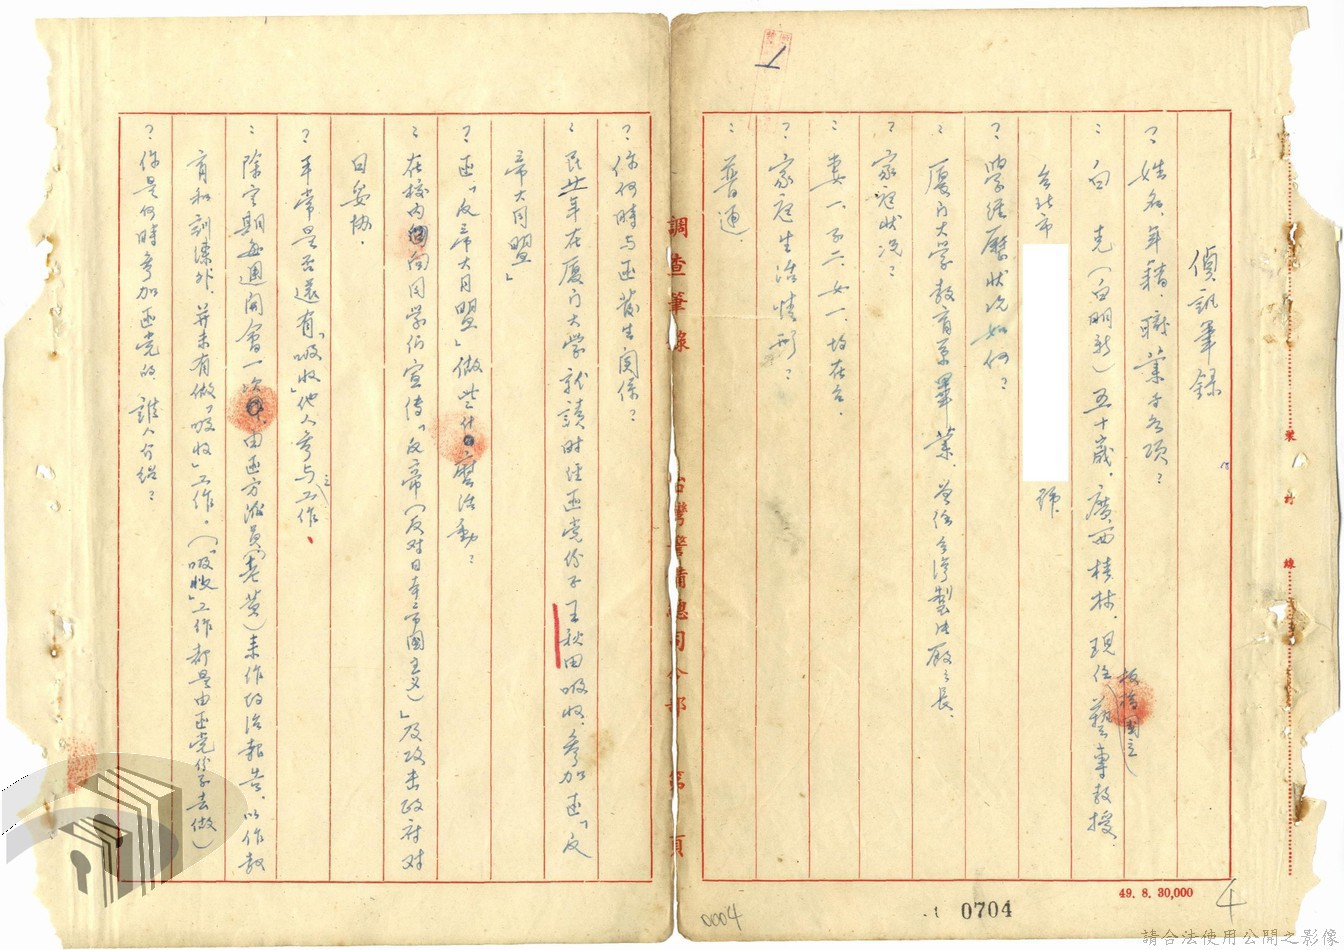 偵訊筆錄
？姓名、年籍、職業等各項？
：白 克（白明新）五十歲，廣西桂林，現任板橋國立藝專教授，
台北市 號
？學經歷狀況如何？
：廈門大學教育系畢業、曾任台灣製片廠廠長。
？家庭狀況？
：妻一、子二、女一、均在台。
？家庭生活情形？
：普通
？你何時与匪發生関係？
：民廿年在廈门大学就讀时経匪党份子王秋田吸收，參加匪「反
帝大同盟」
？匪「反帝大同盟」做些什麼活動？
：在校内向同学们宣传「反帝（反对日本帝國主义）」及攻击政府对
日妥协．
？平常是否還有「吸收」他人參与之工作、
：除定期每週開會一次，由匪方派員（老黃）来作政治報告，以作教
育和訓練外，并未有做「吸收」工作。（「吸收」工作都是由匪党份子去做）
？你是何時參加匪党的，誰人介绍？
調查筆錄
台灣警備總司令部
第 頁
裝訂線
49. 8. 30,000
0704
0004
4
請合法使用公開之影像